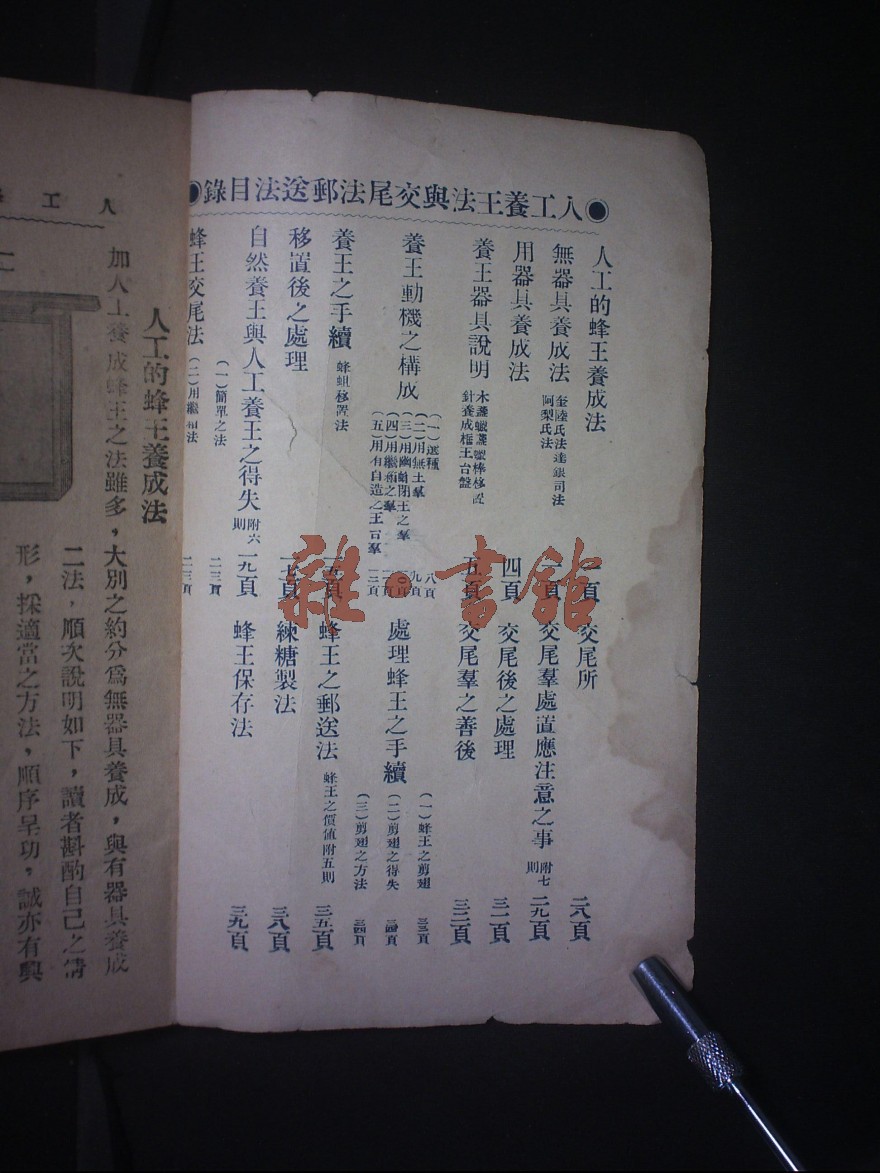 ●人工養王法與交尾法郵送法目錄●
人工的蜂王養成法
無器具養成法 奎陸氏法達銀司法 阿梨氏法 一頁
用器具養成法 四頁
養王器具說明 木盞蠟盞蠟棒移置 針養成框王台盤 五頁
養王動機之構成
(一)選種 八頁
(二)用無王羣 九頁
(三)用幽閉王之羣
(四)用繼箱之羣
(五)用有自造之王台羣 一三頁
養王之手續 蜂蛆移置法 一五頁
移置後之處理
自然養王與人工養王之得失 附六則 一九頁
蜂王交尾法
(一)簡單之法 二三頁
(二)用繼箱法 二三頁
交尾所 二八頁
交尾羣處置應注意之事 附七則 二九頁
交尾後之處理 三一頁
交尾羣之善後 三二頁
處理蜂王之手續
(一)蜂王之剪翅 三三頁
(二)剪翅之得失 三四頁
(三)剪翅之方法 三四頁
蜂王之郵送法 蜂王之價値附五則 三五頁
練糖製法 三八頁
蜂王保存法 三九頁
人工
人工的蜂王養成法
加人工養成蜂王之法雖多，大別之約分爲無器具養成，與有器具養成
二法，順次說明如下，讀者斟酌自己之情
形，採適當之方法，順序呈功，誠亦有興
雜·書館